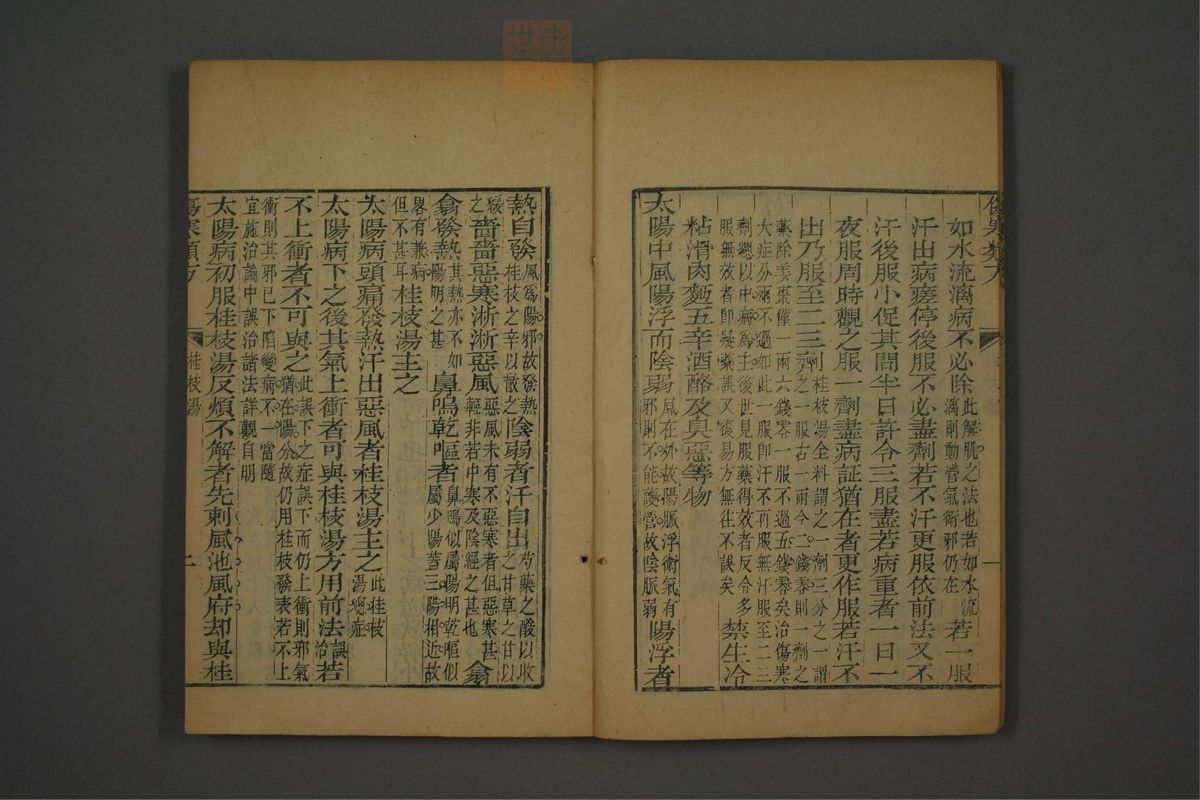 傷寒類方
一
如水流漓病不必除此解肌之法也若如水流漓則動營氣衛邪仍在若一服
汗出病瘥停後服不必盡劑若不汗更服依前法又不
汗後服小促其間半日許令三服盡若病重者一日一
夜服周時觀之服一劑盡病証猶在者更作服若汗不
出乃服至二三劑桂枝湯全料謂之一劑三分之一謂之一服古一兩今二錢零則一劑之
藥除姜棗僅一兩六錢零一服不過五錢零矣治傷寒
大症分兩不過如此一服即汗不再服無汗服至二三
劑總以中病爲主後世見服藥得效者反令多
服無效者即疑藥誤又復易方無往不誤矣禁生冷
粘滑肉麵五辛酒酪及臭惡等物
太陽中風陽浮而陰弱風在外故陽脈浮衛氣有邪則不能護營故陰脈弱陽浮者
熱自發風爲陽邪故發熱桂枝之辛以散之陰弱者汗自出芍藥之酸以收之甘草之甘以
緩之嗇嗇惡寒淅淅惡風惡風未有不惡寒者但惡寒甚輕非若中寒及陰經之甚也翕
翕發熱其熱亦不如陽明之甚鼻鳴乾嘔者鼻鳴似屬陽明乾嘔似屬少陽蓋三陽相近故
畧有兼病但不甚耳桂枝湯主之
太陽病頭痛發熱汗出惡風者桂枝湯主之此桂枝湯總症
太陽病下之後其氣上衝者可與桂枝湯方用前法誤治若
不上衝者不可與之此誤下之症誤下而仍上衝則邪氣猶在陽分故仍用桂枝發表若不上
衝則其邪已下陷變病不一當隨
宜施治論中誤治諸法詳觀自明
太陽病初服桂枝湯反煩不解者先刺風池風府却與桂
傷寒類方
桂枝湯
二